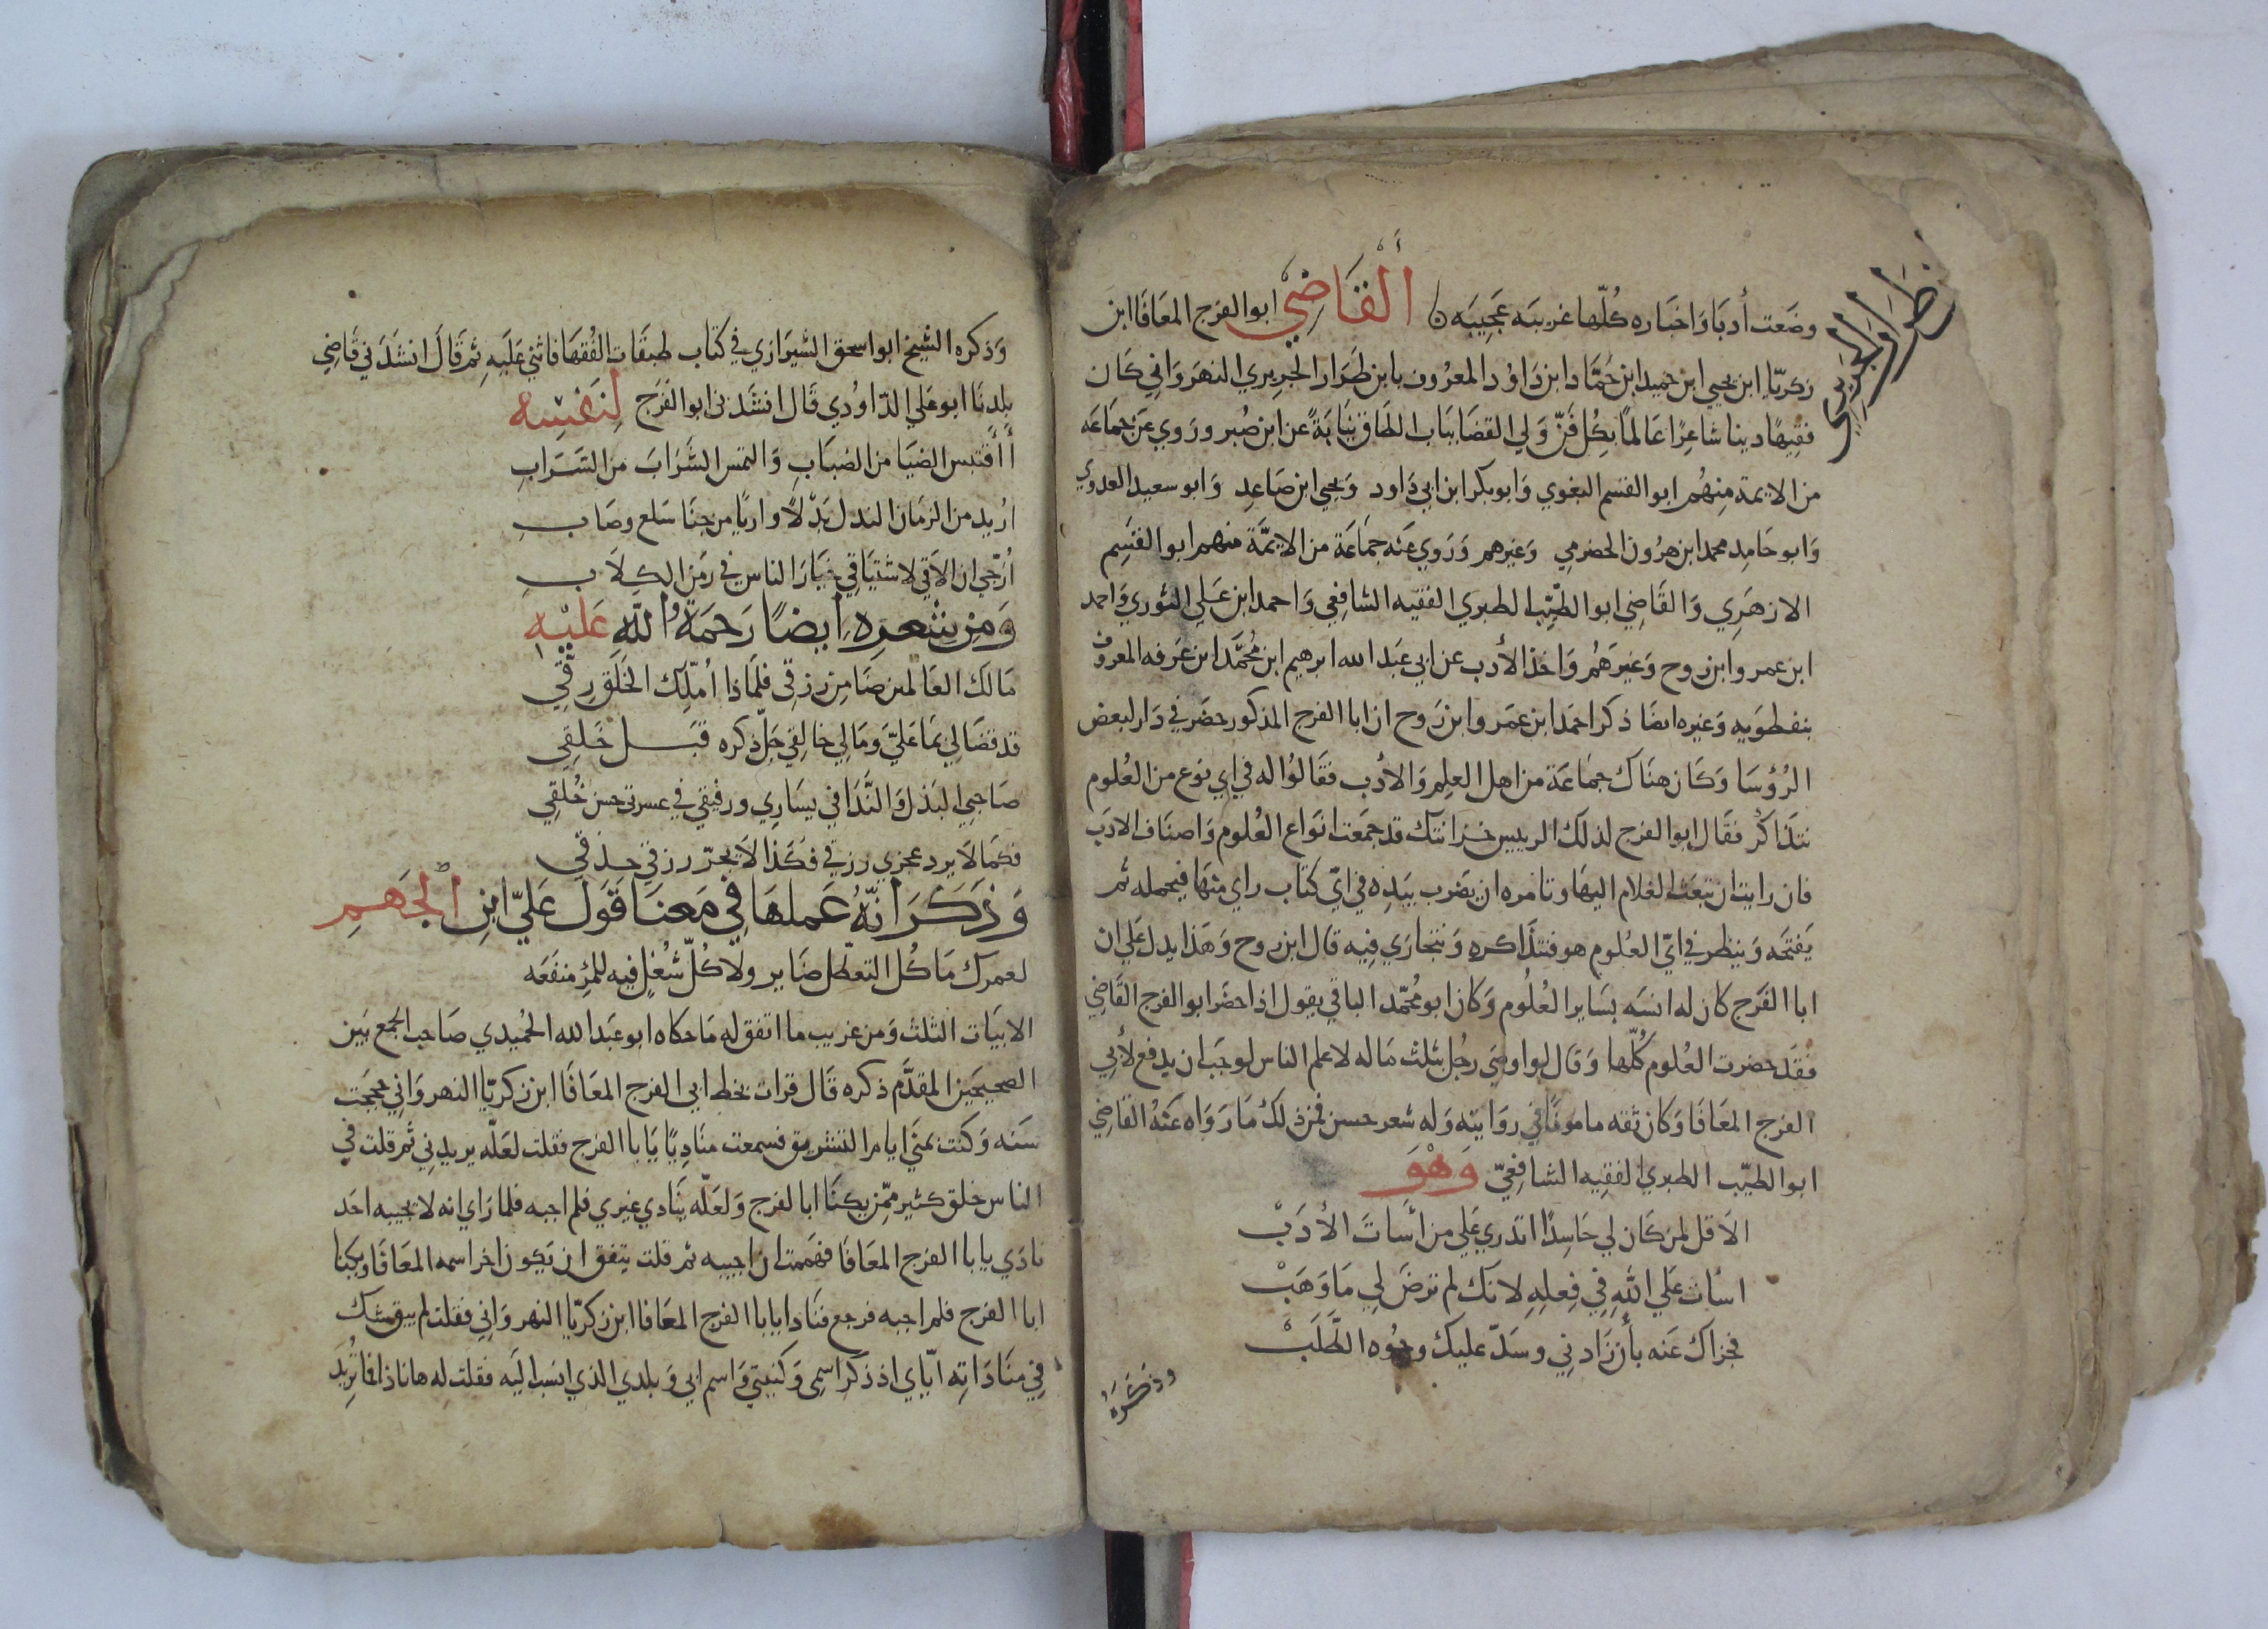 وضعت أدبا واخباره كلّها غريبه عجيبه ۞ ألقاضي ابو الفرج المعافا ابن
طرار الجريري
زكريّا ابن يحيى ابن حميد ابن حمّاد ابن داوُد المعرُوف بابن طَرَار الجريري النهرواني كان
فقيهًا دينا شاعرًا عالمًا بكل فنّ ولي القضا بباب الطاق نيابةً عن ابن صُبر وروي عن جماعه
من الايمة منهُم ابو القسم البغوي وابو بكر ابن ابي داود ويحيى ابن صاعد وابو سعيد العدوي
وابو حامد محمد ابن هرون الحضرمي وغيرهم وروي عنه جماعة من الايمّة منهم ابو القسم
الازهري والقاضي ابو الطيّب الطبري الفقيه الشافعي واحمد ابن علي الثوري واحمد
ابن عمر وابن روح وغيرهُم واخذ الأدب عن ابي عبد الله ابرهيم ابن مُحمّد ابن عرفه المعروف
بنفطويه وغيره ايضا ذكر احمد ابن عمر وابن روح ان ابا الفرج المذكور حضر في دار لبعض
الرُؤسا وكان هناك جماعة من اهل العلم والأدب فقالوُا له في اي نوع من العُلوم
نتذاكرُ فقال ابو الفرج لذلك الرييس خزانتك قد جمعت انواع العُلوم واصناف الادب
فان رايت ان تبعث الغلام اليها وتامره ان يضرب بيده في ايّ كتاب راي منها فيحمله ثم
يفتحه وينظر في ايّ العُلوم هو فنتذاكره ونتجاري فيه قال ابن روح وهذا يدل علي ان
ابا الفرج كان له انسه بساير العُلُوم وكان ابو مُحمّد الباقي يقول اذا حضر ابو الفرج القاضي
فقد حضرت العُلوم كُلّها وقال لو اوصى رجُل بثلث ماله لاعلم الناس لوجب ان يدفع لأبي
الفرج المعافا وكان ثقه مامونًا في روايته وله شعر حسن فمن ذلك ما رواه عنهُ القاضي
ابو الطيّب الطبري الفقيه الشافعيّ وهْو
الا قل لمن كان لي حاسدًا اتدري علي من أسات الأدبْ
اسأت علي اللهِ في فعلهِ لانك لم ترضَ لي ما وهبْ
فجزاك عنه بأن زادني وسدّ عليك وجُوه الطّلبْ
وذكره
وذكره الشيخ ابو اسحق الشيرازي في كتاب طبقات الفُقها فاثني عليه ثم قال انشدني قاضي
بلدنا ابو علي الدّاوُدي قال انشدني ابو الفرج لنفسه
أأقتبس الضيا من الضباب والتمس الشراب من السّراب
اريد من الزمان الندل بدلًا واريًا من جنا سلع وصاب
اُرَجّي ان الاقي لاشتياقي خيار الناس في زمن الكلاب
ومن شعره ايضًا رحمةُ اللّه عليه
مالك العالمين ضامن رزقي فلماذا أملّك الخلق رقّي
قد قضا لي بما عليّ ومالي خالقي جلّ ذكره قبل خلقي
صاحبي البذل والنّدا في يساري ورفيقي في عسرتي حسن خُلقي
فكما لا يرد عجزي رزقي فكذا لا يجرّ رزقي حذقي
وذكر انّهُ عملها في معنا قول عليّ ابن الجهم
لعمرك ما كُل التعطّل ضاير ولا كُلّ شُغلٍ فيه للمرِ منفعه
الابيات الثلث ومن غريب ما اتفق له ما حكاه ابو عبد الله الحُميدي صاحب الجمع بين
الصحيحين المقدّم ذكره قال قرات بخط ابي الفرج المعافا ابن زكريّا النهرواني حججت
سنه وكنت بمني ايام التشريق فسمعت مناديًا يابا الفرج فقلت لعلّه يريدني ثم قلت في
الناس خلق كثير ممّن يكنا ابا لفرج ولعلّه ينادي غيري فلم اجبه فلما راي انه لا يجيبه احد
نادي يابا الفرج المعافا فهممت ان اجيبه ثم قلت يتفق ان يكون اخر اسمه المعافا ويكنا
ابا الفرج فلم اجبه فرجع فنادا يابا الفرج المعافا ابن زكريّا النهرواني فقلت لم يبق شك
في مناداته ايّاي اذ ذكر اسمي وكنيتي واسم ابي وبلدي الذي انسب اليه فقلت له هانا ذا فما تُريد